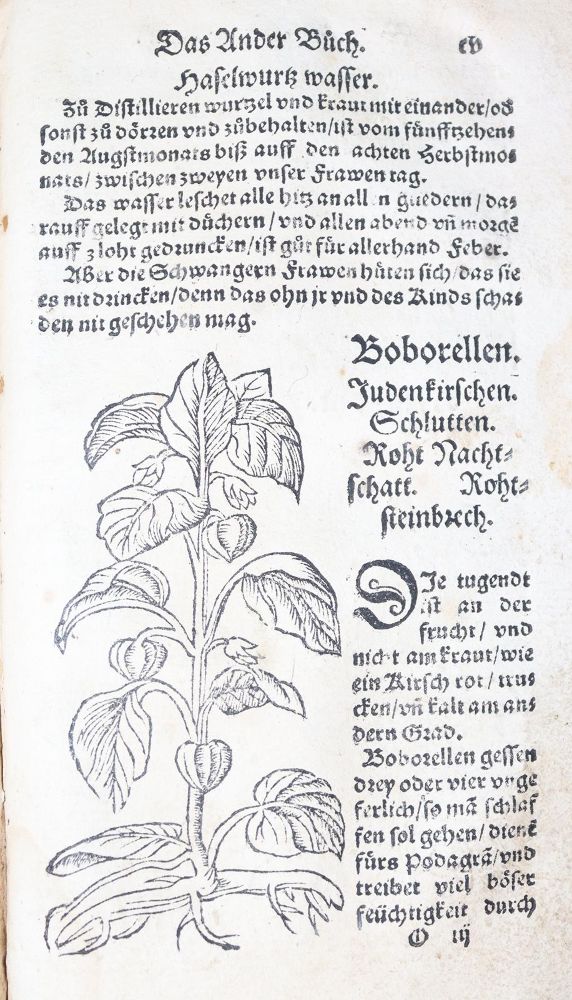 Das Ander Bůch. cv
Haselwurtz wasser.
Zů Distillieren wurtzel vnd kraut mit einander/od
sonst zů dörzen vnd zůbehalten/ist vom fünfftzehen⸗
den Augstmonats biß auff den achten Herbstmo⸗
nats/zwischen zweyen vnser Frawen tag.
Das wasser leschet alle hitz an all n gliedern/dar
rauff gelegt mit düchern/vnd allen abend vñ morgē
auff loht gedruncken/ist gůt für allerhand Feber.
Aber die Schwangern Frawen hüten sich/das sie
es nit drincken/denn das ohn jr vnd des Kinds scha⸗
den nit geschehen mag.
Boborellen.
Judenkirschen.
Schlutten.
Roht Nacht⸗
schatt. Roht⸗
steinbrech.
DIe tugendt
ist an der
frucht/ vnd
nicht am kraut/wie
ein Kirsch rot/ truc
cken/vñ kalt am an⸗
dern Grad.
Boborellen gessen
drey oder vier vnge
ferlich/so mā schlaf
fen sol gehen/dienēt
fürs Podagrā/vnd
treibet viel böser
feüchtigkeit durch
O iij